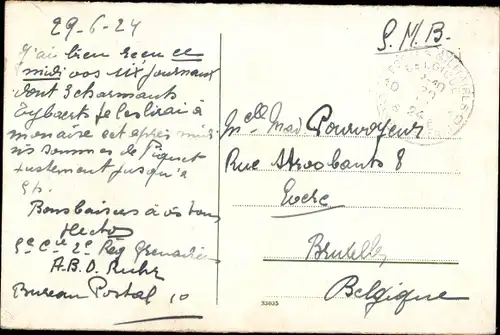 29-6-24
J'ai bien reçu ce
midi vos journaux
dont 3 charmants
je les lirai à
mon aise cet après midi
ns sommes de Piquet
justement jusqu'à
Bons baisers à vs tous
Hector
5e Cie 2e Rég Grenadiers
A.B.O. Ruhr
Bureau Postal 10
S.M.B.
Melle Mad Pourvoyeur
Rue Stroobants 8
Evere
Bruxelles
Belgique